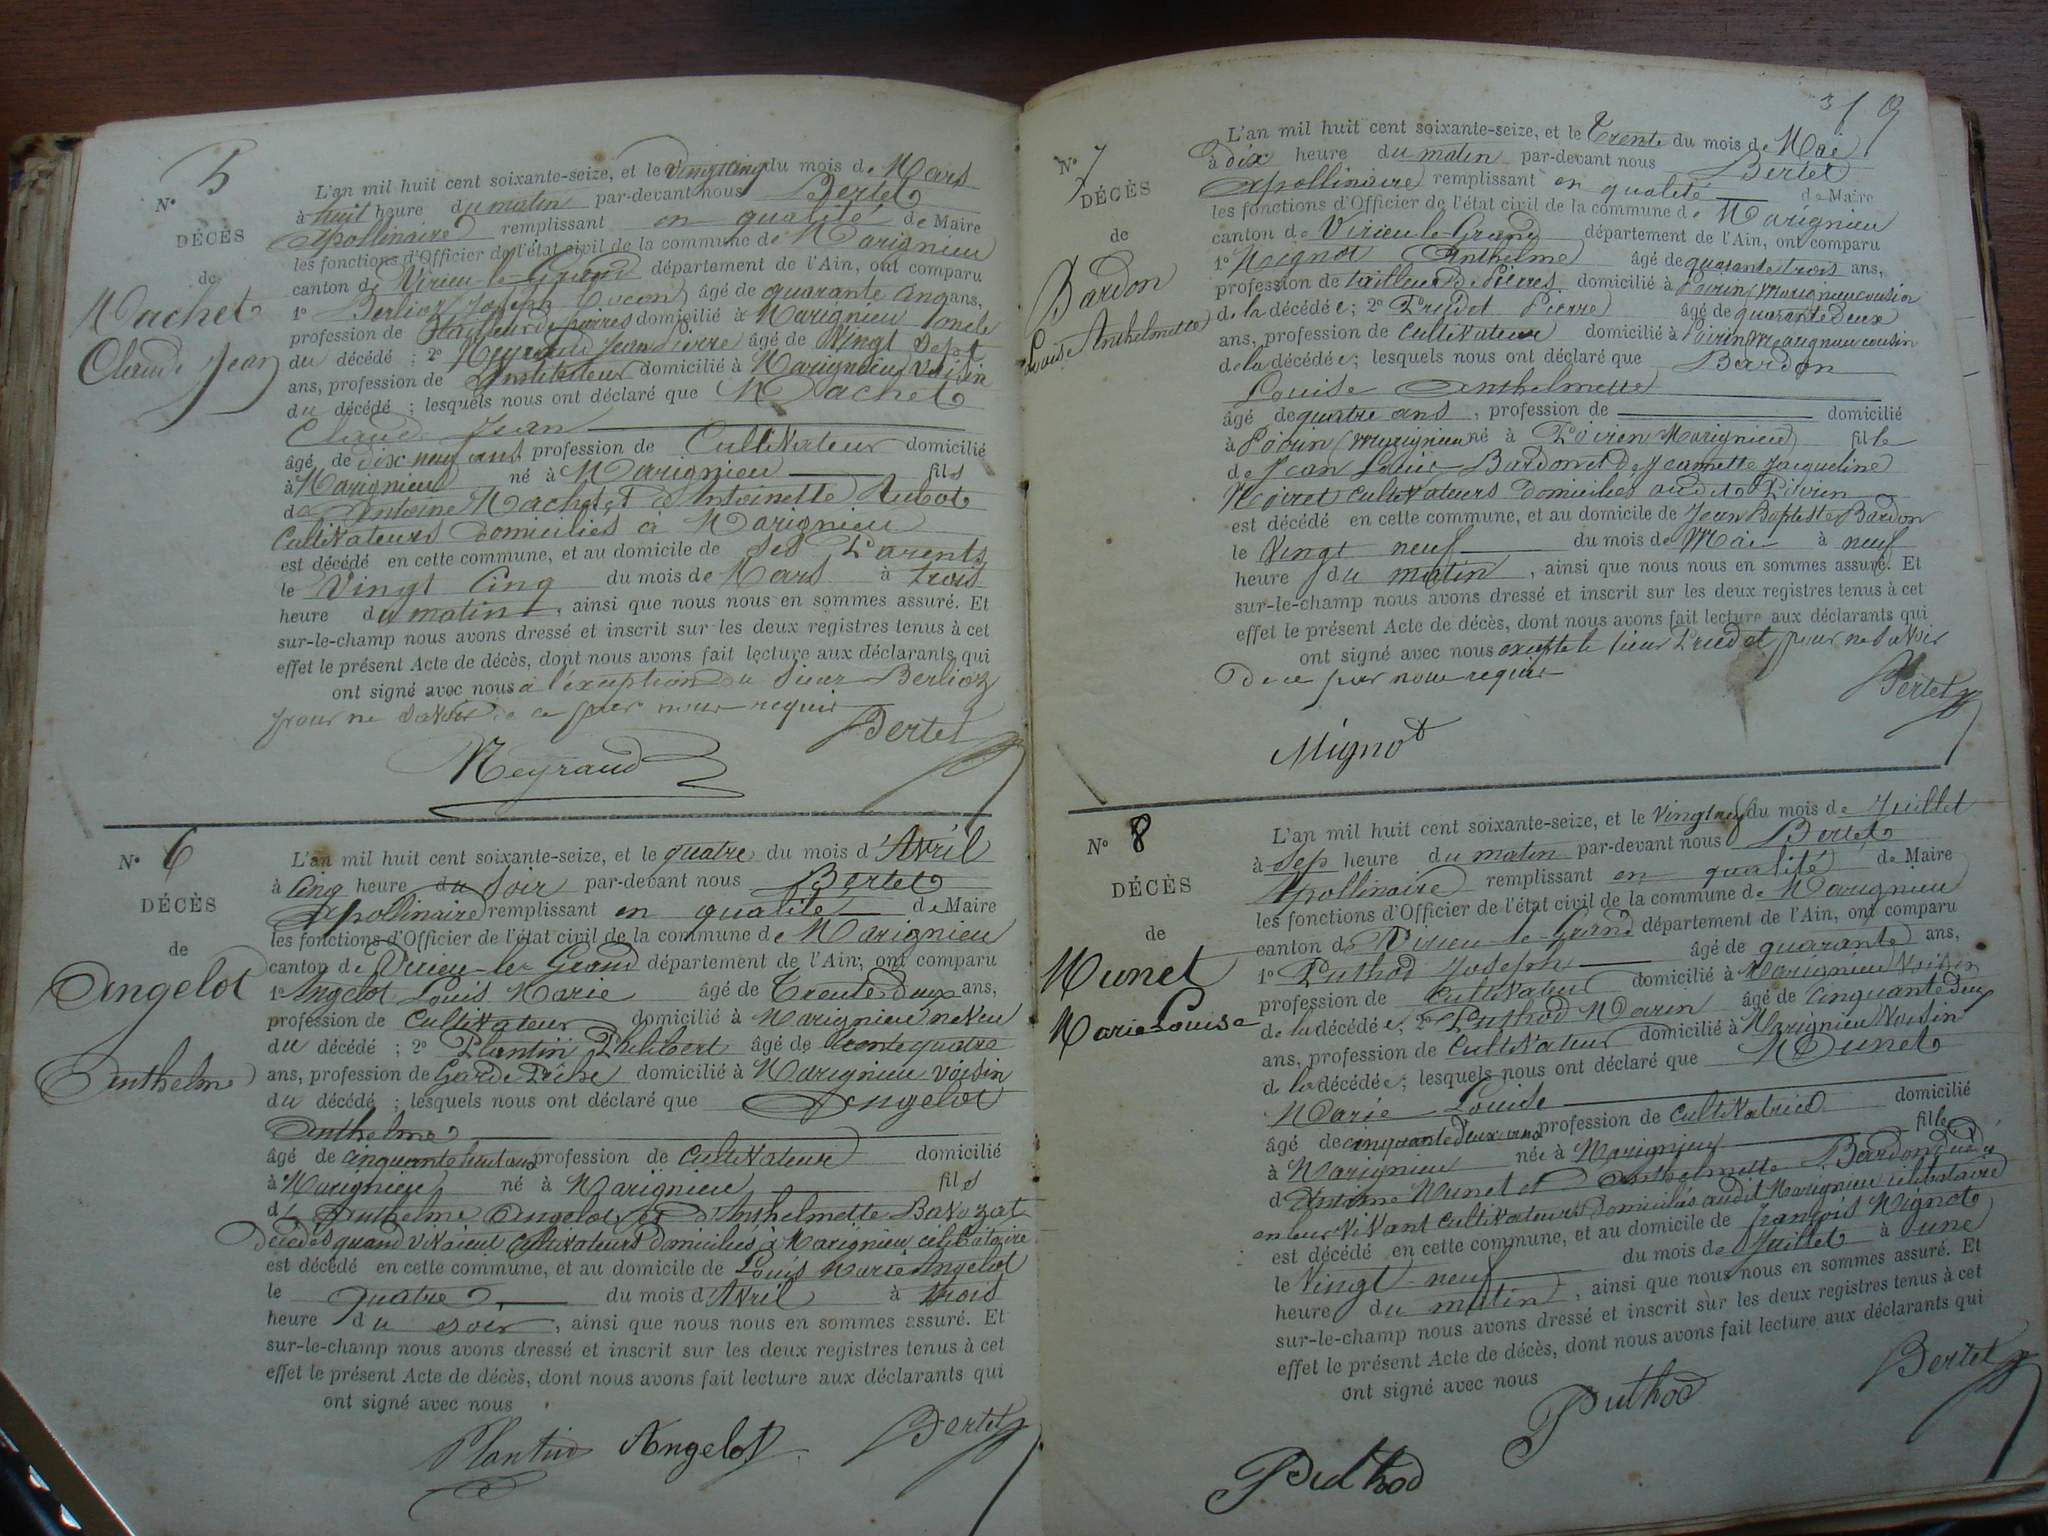 N° 5
DÉCÈS
de
Machet
Claude Jean
L'an mil huit cent soixante-seize, et le vingt cinq du mois de Mars
à huit heure du matin par-devant nous Bertet
Apollinaire remplissant en qualité de Maire
les fonctions d'Officier de l'état civil de la commune de Marignieu
canton de Virieu-le-Grand département de l'Ain, ont comparu
1° Berlioz Joseph âgé de quarante cinq ans,
profession de tailleur de pierres domicilié à Marignieu oncle
du décédé ; 2° Neyraud Jean Pierre âgé de Vingt Sept
ans, profession de Instituteur domicilié à Marignieu Voisin
du décédé ; lesquels nous ont déclaré que Machet
Claude Jean
âgé de dix neuf ans, profession de Cultivateur domicilié
à Marignieu né à Marignieu fils
de Antoine Machet et d'Antoinette
Cultivateurs Domiciliés à Marignieu
est décédé en cette commune, et au domicile de Ses Parents
le Vingt Cinq du mois de Mars à trois
heure du matin, ainsi que nous nous en sommes assuré. Et
sur-le-champ nous avons dressé et inscrit sur les deux registres tenus à cet
effet le présent Acte de décès, dont nous avons fait lecture aux déclarants qui
ont signé avec nous à l'exception du Sieur Berlioz
pour ne Savoir de ce par nous requis
Bertet
Neyraud
N° 6
DÉCÈS
de
Angelot
Anthelme
L'an mil huit cent soixante-seize, et le quatre du mois d'Avril
à Cinq heure du Soir par-devant nous Bertet
Apollinaire remplissant en qualité de Maire
les fonctions d'Officier de l'état civil de la commune de Marignieu
canton de Virieu-le-Grand département de l'Ain, ont comparu
1° Angelot Louis Marie âgé de Trente Deux ans,
profession de Cultivateur domicilié à Marignieu neveu
du décédé ; 2° Plantin Philibert âgé de trente quatre
ans, profession de Garde Pêche domicilié à Marignieu voisin
du décédé ; lesquels nous ont déclaré que Angelot
Anthelme
âgé de cinquante huit ans profession de Cultivateur domicilié
à Marignieu né à Marignieu fils
d' Anthelme Angelot et d'Anthelmette Bavuzat
Décédés quand vivaient Cultivateurs Domiciliés à Marignieu, célibataire
est décédé en cette commune, et au domicile de Louis Marie Angelot
le quatre du mois d'Avril à trois
heure du soir, ainsi que nous nous en sommes assuré. Et
sur-le-champ nous avons dressé et inscrit sur les deux registres tenus à cet
effet le présent Acte de décès, dont nous avons fait lecture aux déclarants qui
ont signé avec nous
Plantin Angelot Bertet
N° 7
DÉCÈS
de
Bardon
Louise Anthelmette
L'an mil huit cent soixante-seize, et le Trente du mois de Mai
à dix heure du matin par-devant nous Bertet
Apollinaire remplissant en qualité de Maire
les fonctions d'Officier de l'état civil de la commune de Marignieu
canton de Virieu le Grand département de l'Ain, ont comparu
1° Mignot Anthelme âgé de quarante trois ans,
profession de tailleur de Pierres domicilié à Poirin Marignieu cousin
de la décédée ; 2° Prudet Pierre âgé de quarante deux
ans, profession de Cultivateur domicilié à Poirin Marignieu cousin
de la décédée ; lesquels nous ont déclaré que Bardon
Louise Anthelmette
âgé de quatre ans, profession de domicilié
à Poirin (Marignieu né à Poirin Marignieu) fille
de Jean Louis Bardon et de Jeannette Jacqueline
Moiret Cultivateurs Domiciliés audit Poirin
est décédé en cette commune, et au domicile de Jean Baptiste Bardon
le Vingt neuf du mois de Mai à neuf
heure du matin, ainsi que nous nous en sommes assuré. Et
sur-le-champ nous avons dressé et inscrit sur les deux registres tenus à cet
effet le présent Acte de décès, dont nous avons fait lecture aux déclarants qui
ont signé avec nous excepté le Sieur Prudet pour ne Savoir
De ce par nous requis
Bertet
Mignot
N° 8
DÉCÈS
de
Munet
Marie Louise
L'an mil huit cent soixante-seize, et le vingt neuf du mois de Juillet
à Sep heure du matin par-devant nous Bertet
Apollinaire remplissant en qualité de Maire
les fonctions d'Officier de l'état civil de la commune de Marignieu
canton de Virieu-le-Grand département de l'Ain, ont comparu
1° Puthod Joseph âgé de quarante ans,
profession de Cultivateur domicilié à Marignieu Voisin
de la décédée ; 2° Puthod Marin âgé de Cinquante Deux
ans, profession de Cultivateur domicilié à Marignieu Voisin
de la décédée ; lesquels nous ont déclaré que Munet
Marie Louise
âgé de cinquante deux ans profession de Cultivatrice domicilié
à Marignieu née à Marignieu fille
d'Antoine Munet et Anthelmette Bardon
en leur Vivant Cultivateurs Domiciliés audit Marignieu célibataire
est décédé en cette commune, et au domicile de François Mignot
le Vingt neuf du mois de Juillet à une
heure du matin, ainsi que nous nous en sommes assuré. Et
sur-le-champ nous avons dressé et inscrit sur les deux registres tenus à cet
effet le présent Acte de décès, dont nous avons fait lecture aux déclarants qui
ont signé avec nous
Puthod Bertet
Puthod